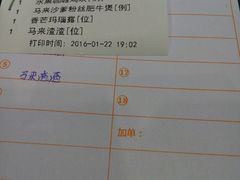 1 马来沙爹粉丝肥牛煲[例]
1 香芒玛瑙露[位]
1 马来渣渣[位]
打印时间: 2016-01-22 19:02
⑤ ⑰
马来渣渣
⑱
加单: